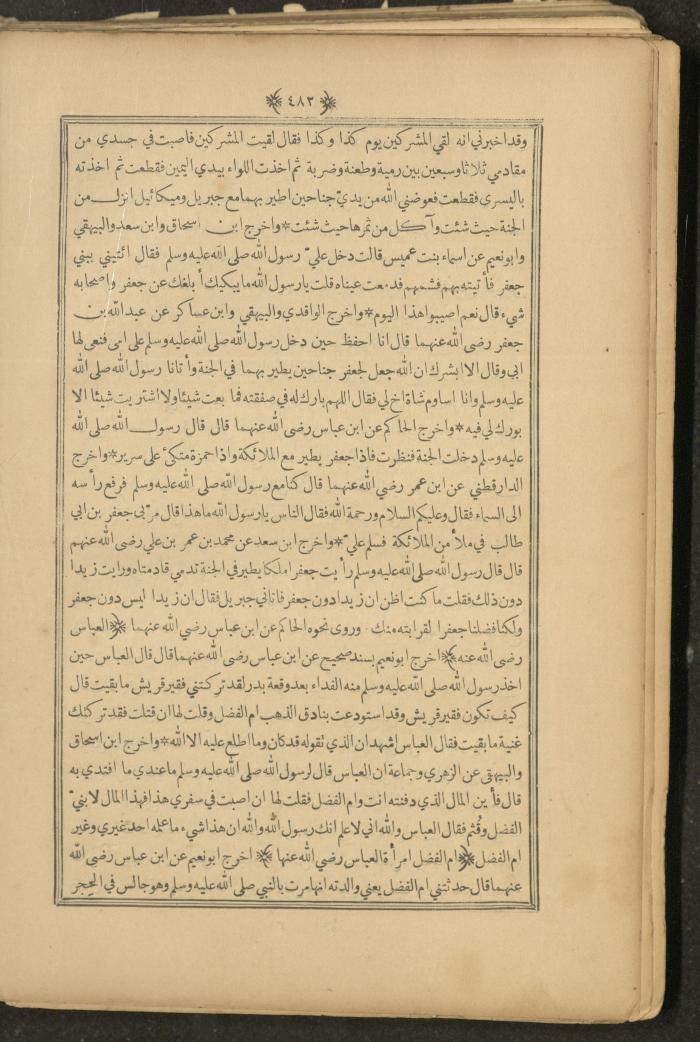 ﴿٤٨٣﴾
وقد اخبرني انه لقي المشركين يوم كذا وكذا فقال لقيت المشركين فاصبت في جسدي من
مقادمي ثلاثا وسبعين بين رمية وطعنة وضربة ثم اخذت اللواء بيدي اليمين فقطعت ثم اخذته
باليسرى فقطعت فعوضني الله من يديّ جناحين اطير بهما مع جبريل وميكائيل انزل من
الجنة حيث شئت وآكل من ثمرها حيث شئت * واخرج ابن اسحاق وابن سعد والبيهقي
وابونعيم عن اسماء بنت عميس قالت دخل عليّ رسول الله صلى الله عليه وسلم فقال ائتيني ببني
جعفر فأ تيته بهم فشمهم فدمعت عيناه قلت يارسول الله ما يبكيك أ بلغك عن جعفر واصحابه
شيء قال نعم اصيبوا هذا اليوم * واخرج الواقدي والبيهقي وابن عساكر عن عبد الله بن
جعفر رضي الله عنهما قال انا احفظ حين دخل رسول الله صلى الله عليه وسلم على امي فنعى لها
ابي وقال الا ابشرك ان الله جعل لجعفر جناحين يطير بهما في الجنة وأ تانا رسول الله صلى الله
عليه وسلم وانا اساوم شاة اخ لي فقال اللهم بارك له في صفقته فما بعت شيئا ولا اشتريت شيئا الا
بورك لي فيه * واخرج الحاكم عن ابن عباس رضي الله عنهما قال قال رسول الله صلى الله
عليه وسلم دخلت الجنة فنظرت فاذا جعفر يطير مع الملائكة واذا حمزة متكئ على سرير * واخرج
الدارقطني عن ابن عمر رضي الله عنهما قال كنا مع رسول الله صلى الله عليه وسلم فرفع رأ سه
الى السماء فقال وعليكم السلام ورحمة الله فقال الناس يارسول الله ما هذا قال مرّ بي جعفر بن ابي
طالب في ملأ من الملائكة فسلم عليّ * واخرج ابن سعد عن محمد بن عمر بن علي رضي الله عنهم
قال قال رسول الله صلى الله عليه وسلم رأ يت جعفرا ملكا يطير في الجنة تدمي قادمتاه ورايت زيدا
دون ذلك فقلت ما كنت اظن ان زيدا دون جعفر فاتاني جبريل فقال ان زيدا ليس دون جعفر
ولكنا فضلنا جعفرا لقرابته منك . وروى نحوه الحاكم عن ابن عباس رضي الله عنهما ﴿العباس
رضي الله عنه﴾ اخرج ابونعيم بسند صحيح عن ابن عباس رضي الله عنهما قال قال العباس حين
اخذ رسول الله صلى الله عليه وسلم منه الفداء بعد وقعة بدر لقد تركتني فقير قريش ما بقيت قال
كيف تكون فقير قريش وقد استودعت بنادق الذهب ام الفضل وقلت لها ان قتلت فقد تركتك
غنية ما بقيت فقال العباس اشهد ان الذي تقوله قد كان وما اطلع عليه الا الله * واخرج ابن اسحاق
والبيهقي عن الزهري وجماعة ان العباس قال لرسول الله صلى الله عليه وسلم ما عندي ما افتدي به
قال فأ ين المال الذي دفنته انت وام الفضل فقلت لها ان اصبت في سفري هذا فهذا المال لابنيّ
الفضل وقُثم فقال العباس والله اني لاعلم انك رسول الله والله ان هذا شيء ما علمه احد غيري وغير
ام الفضل ﴿ام الفضل امرأ ة العباس رضي الله عنها﴾ اخرج ابونعيم عن ابن عباس رضي الله
عنهما قال حدثتني ام الفضل يعني والدته انها مرت بالنبي صلى الله عليه وسلم وهو جالس في الحِجر